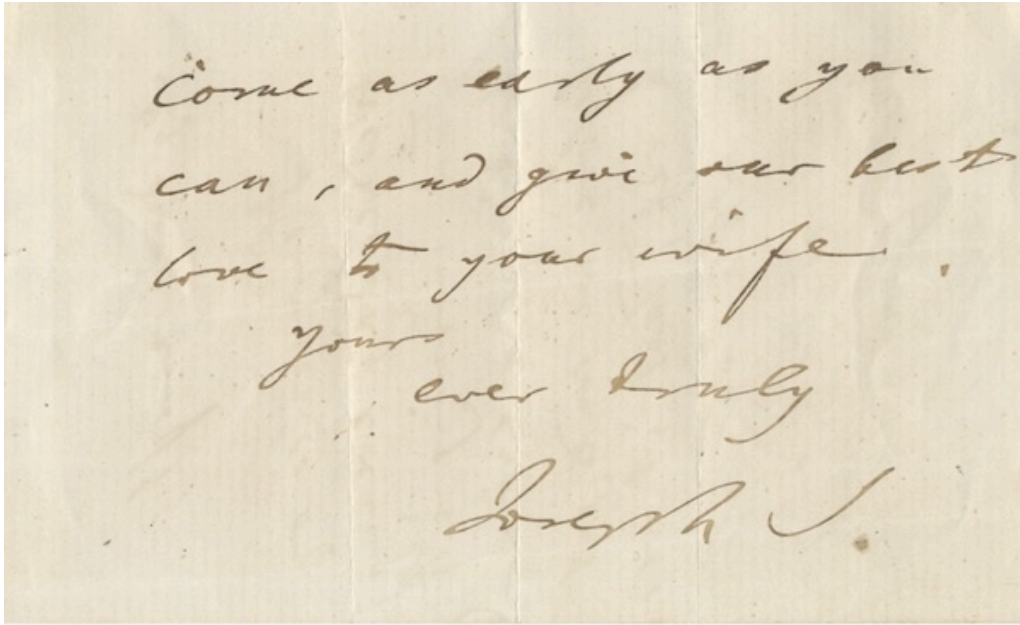 come as early as you
can, and give our best
love to your wife.
yours
ever truly
Joseph J.